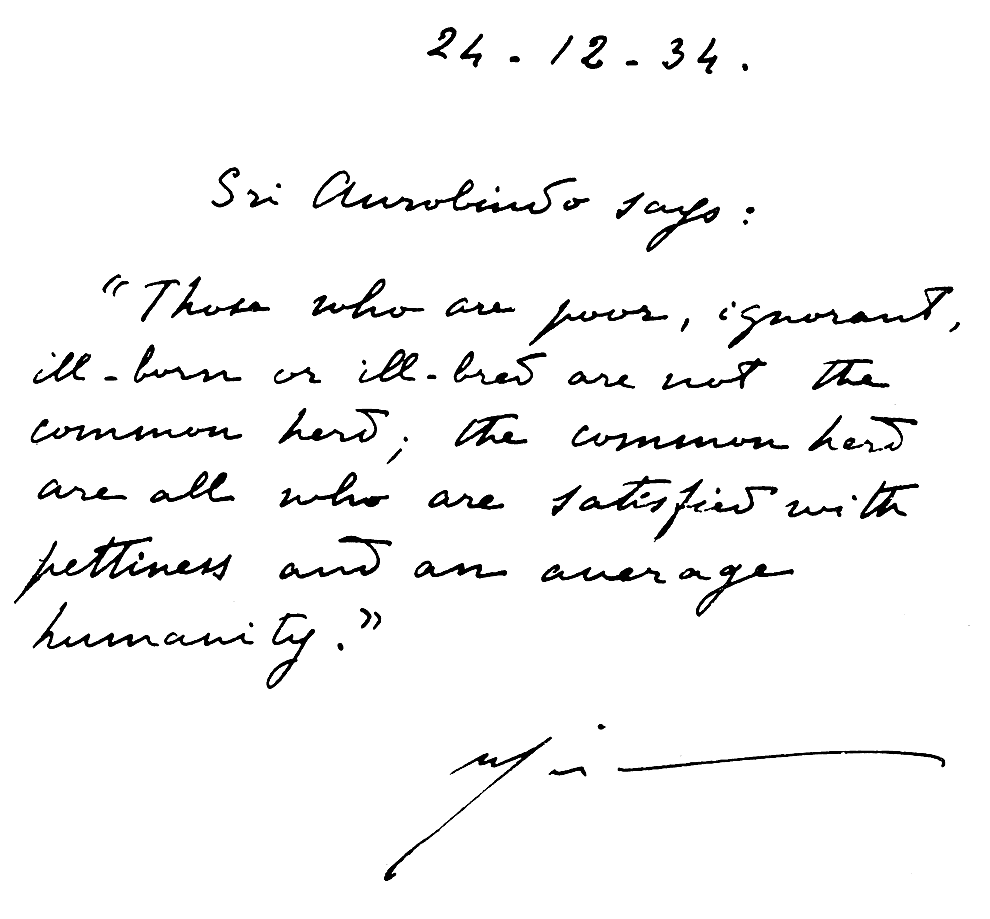 24-12-34.
Sri Aurobindo says:
“Those who are poor, ignorant,
ill-born or ill-bred are not the
common herd; the common herd
are all who are satisfied with
pettiness and an average
humanity.”